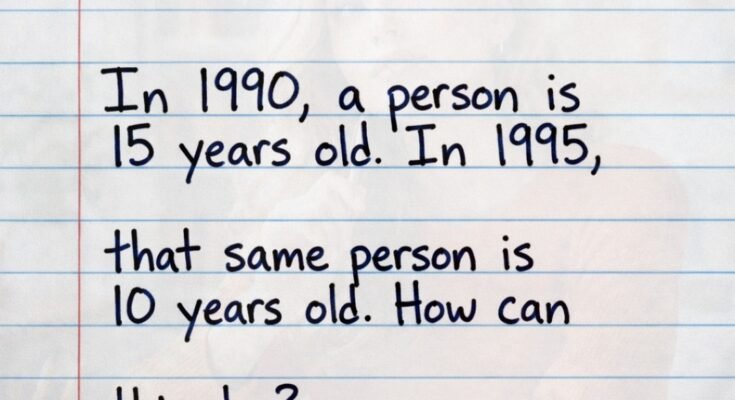 In 1990, a person is
15 years old. In 1995,
that same person is
10 years old. How can